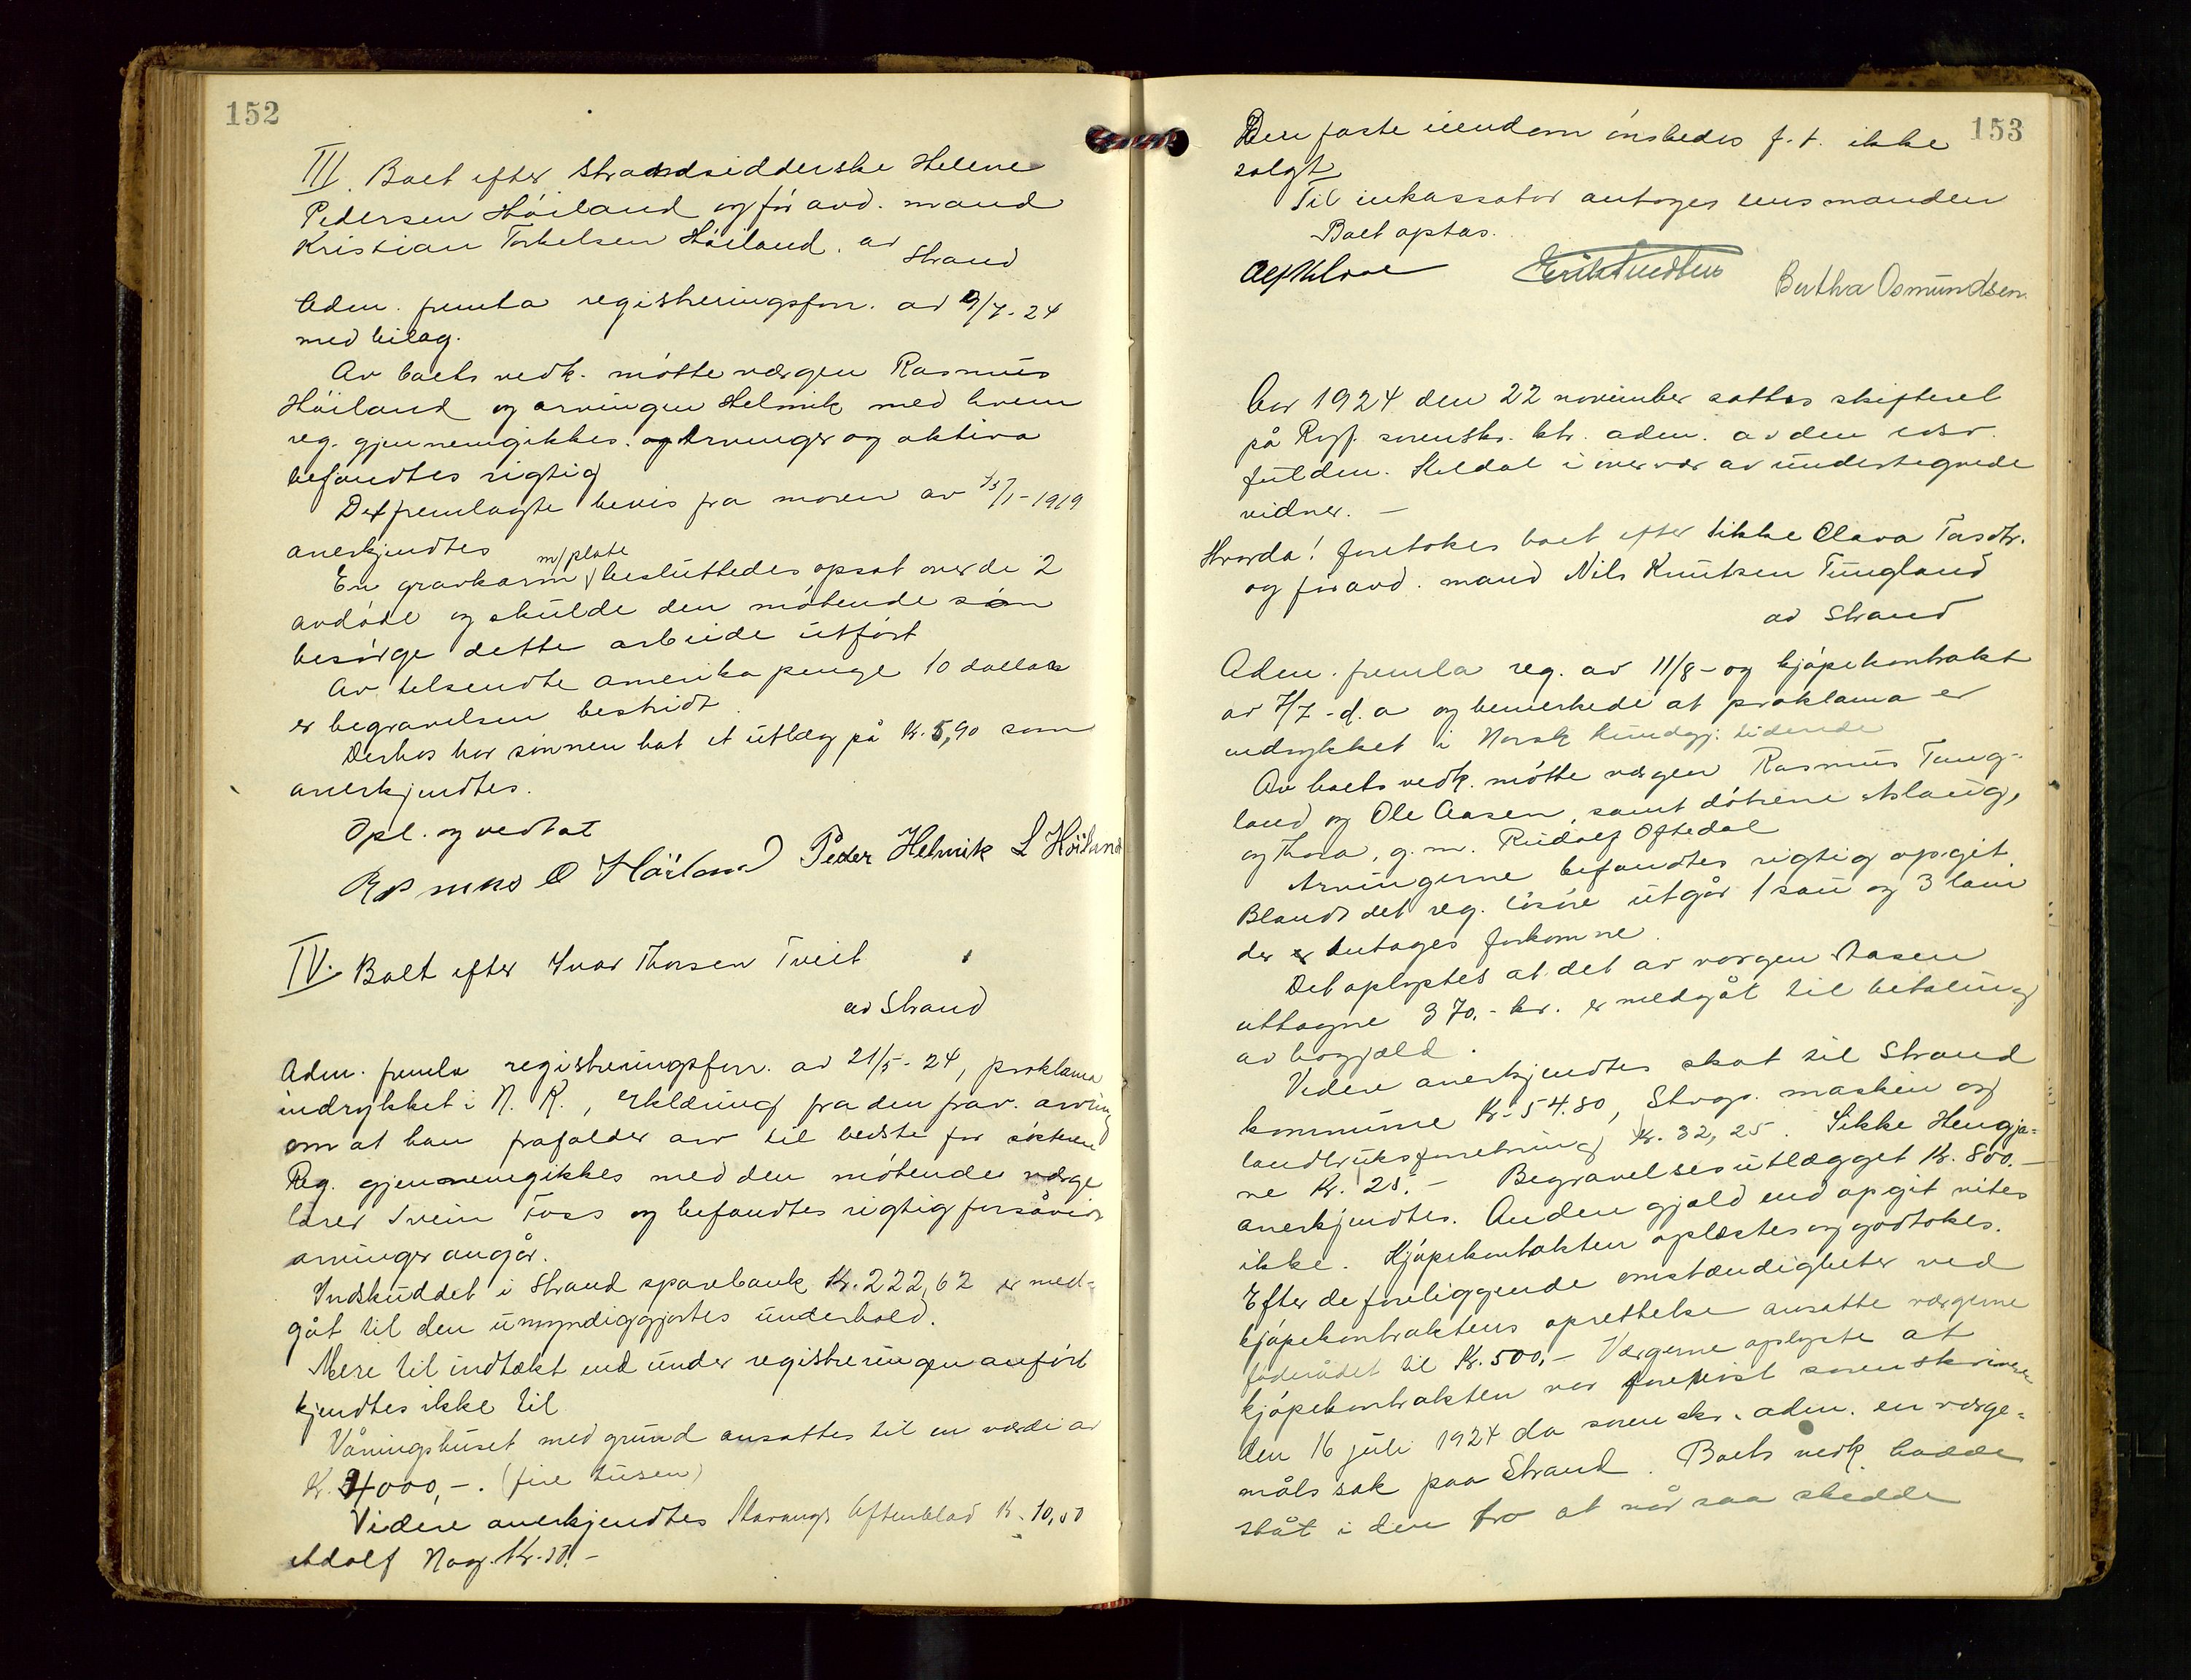 152
III. Boet efter Strandsidderske Helene
Pedersen Höiland og föravd. mand
Kristian Torkelsen Höiland. av
Strand
Adm. fremla registreringsforr. av 9/7-24
med bilag.
Av boets vedk. mötte vergen Rasmus
Höiland og arvingen Helmik med hvem
reg. gjennemgikkes. og Arvinger og aktiva
befandtes rigtig
Det fremlagte bevis fra moren av 15/1-1919
anerkjendtes
m/plate
En gravkarm besluttedes opsat over de 2
avdöde og skulde den mötende sön
besörge dette arbeide utfört
Av tilsendte amerika penge 10 dollars
er begravelsen bestridt.
Derhos har sönnen hat et utlæg på Kr. 5,90 som
anerkjendtes.
Opl. og vedtat
Rasmus O Höiland Peder Helmik L Höiland
IV. Boet efter Ivar Thorsen Tveit
av Strand
Adm. fremla registreringsforr. av 21/5-24, proklama
indrykket i N. K., erklæring fra den frav. arving
om at han frafalder arv til bedste for söstrene
Reg. gjennemgikkes med den mötende verge
lærer Svein Foss og befandtes rigtig forsåvidt
arvinger angår.
Indskuddet i Strand sparebank Kr. 222,62 er med-
gåt til den umyndiggjortes underhold.
Mere til indtækt end under registreringen anfört
kjendtes ikke til
Våningshuset med grund ansattes til en værdi av
Kr. 4000,-. (fire tusen)
Videre anerkjendtes Stavanger Aftenblad Kr. 10,50
Adolf Nag. Kr. 50.-
153
Den faste eiendom önskedes f.t. ikke
solgt
Til inkassator antoges lensmanden
Boet optas.
Bertha Osmundsen.
Aar 1924 den 22 november sattes skifteret
på Ryf. sorenskr. ktr. adm. av den edsv.
fuldm. Keldal i overvær av undertegnede
vidner. -
Hvorda! foretokes boet efter Sikke Olava Tasdtr.
og föravd. mand Nils Knutsen Tungland
av Strand
Adm. fremla reg. av 11/8- og kjöpekontrakt
av 7/7-d.a og bemerkede at proklama er
indrykket i Norsk kundgj. tidende
Av boets vedk. mötte vergen Rasmus Tung-
land og Ole Aasen, samt dötrene Aslaug,
og Thora, g.m. Rudolf Oftedal
Arvingerne befandtes rigtig opgit.
Blandt det reg. lösöre utgår 1 sau og 3 lam
der antages forkomne.
Det oplystes at det av vergen Aasen
uttagne 370.- kr. er medgåt til betaling
av bogjæld.
Videre anerkjendtes skat til Strand
kommune Kr. 54.80, Stvgr. maskin og
landbruksforretning Kr. 32,25. Sikke Hengja-
ne Kr. 25.- Begravelsesutlægget Kr. 800.-
anerkjendtes. Anden gjæld end opgit vites
ikke. Kjöpekontrakten oplæstes og godtokes.
Efter de foreliggende omstændigheter ved
kjöpekontraktens oprettelse ansatte vergerne
föderådet til Kr. 500,- Vergerne oplyste at
kjöpekontrakten var forevist sorenskriveren
den 16 juli 1924 da sorenskr. adm. en verge-
måls sak paa Strand. Boets vedk. hadde
ståt i den tro at når saa skedde